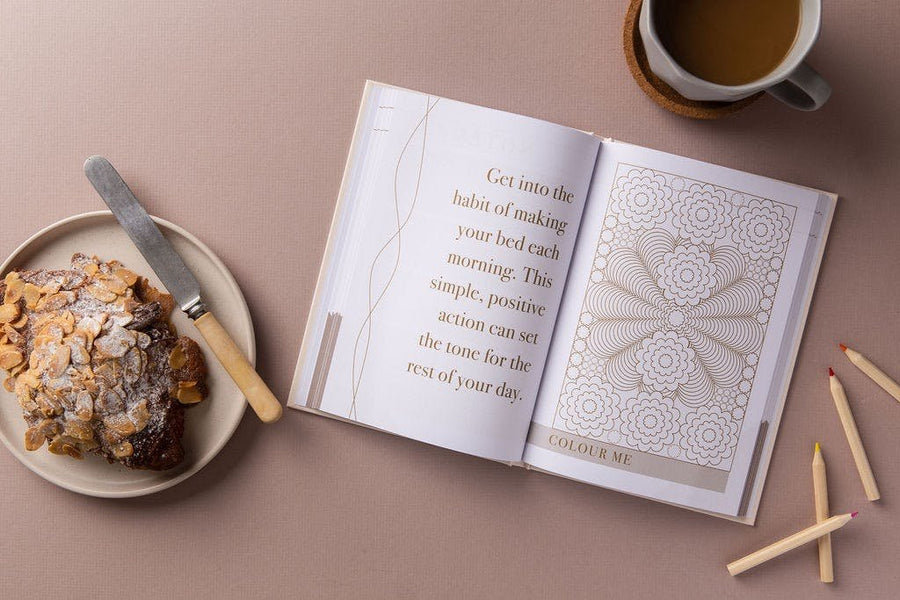 Get into the
habit of making
your bed each
morning. This
simple, positive
action can set
the tone for the
rest of your day.
COLOUR ME